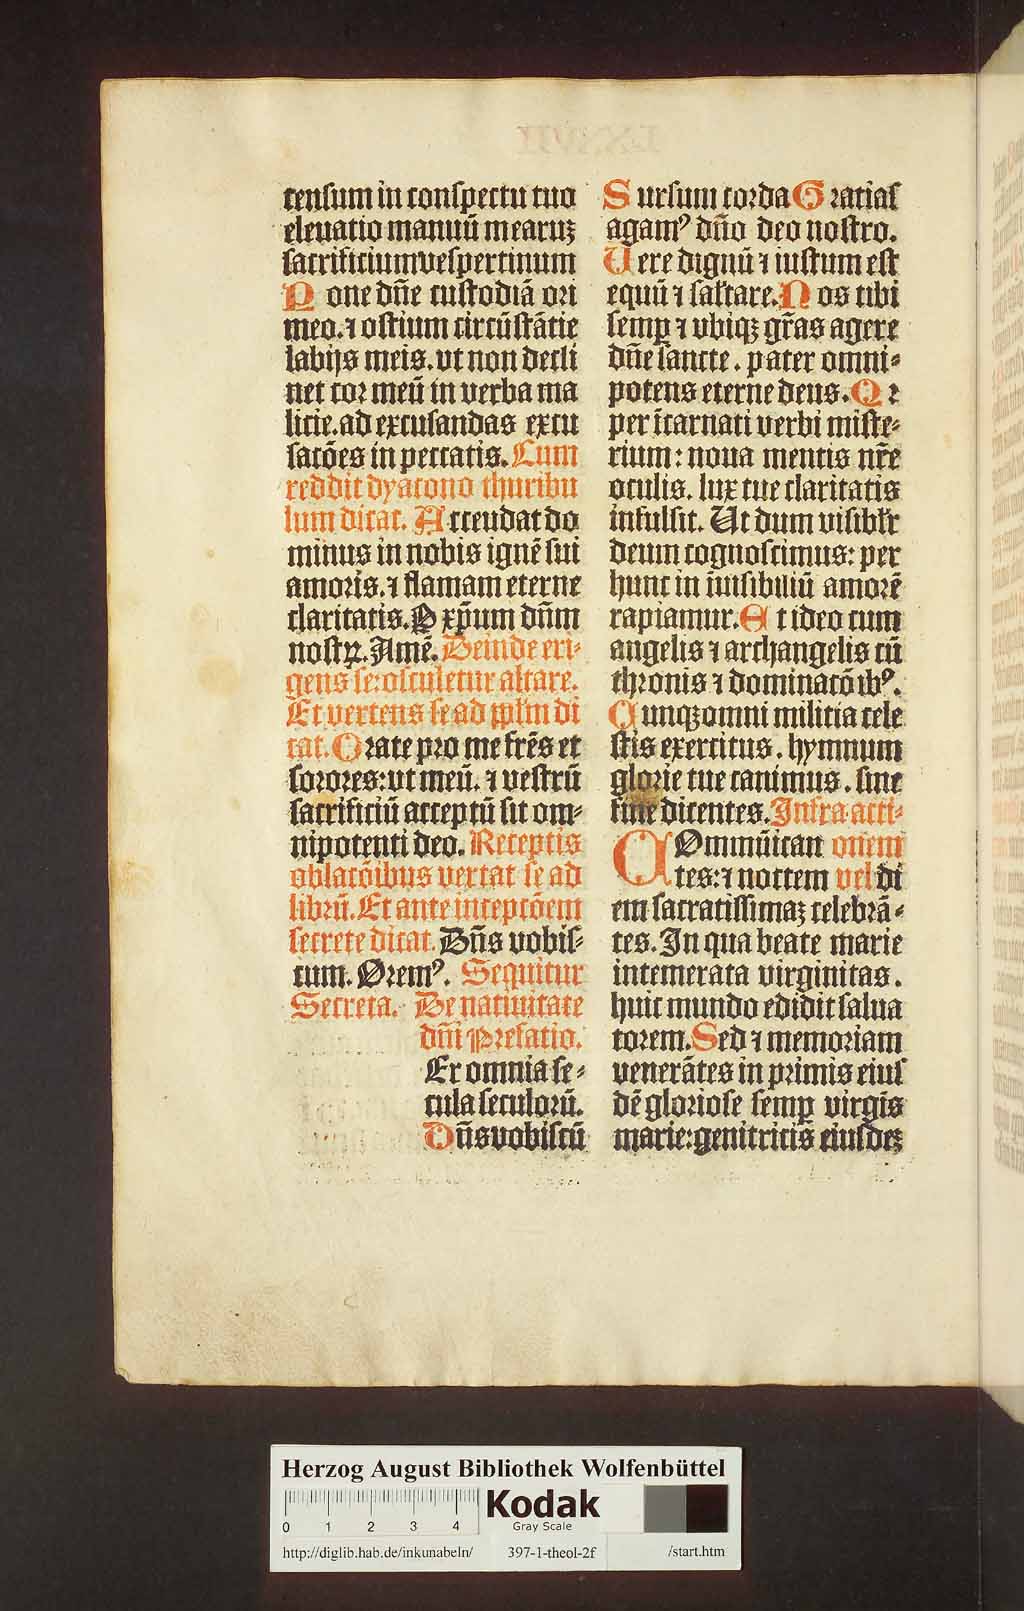 censum in conspectu tuo
eleuatio manuū mearuꝫ
sacrificiumvespertinum
Pone dn̄e custodiā ori
meo.⁊ ostium circūstātie
labijs meis.vt non decli
net cor meū in verba ma
licie.ad excusandas excu
sacōes in peccatis.Cum
reddit dyacono thuribu
lum dicat. Accendat do
minus in nobis ignē sui
amoris.⁊ flamam eterne
claritatis.P xp̄um dn̄m
nostꝝ.Amē.Deinde eri-
gens se:osculetur altare.
Et vertens se ad pplm di
cat.Orate pro me fr̄es et
sorores:vt meū.⁊ vestrū
sacrificiū acceptū sit om-
nipotenti deo.Receptis
oblacōibus vertat se ad
librū.Et ante incepcōem
secrete dicat.Dn̄s vobis-
cum.Oremꝰ. Sequitur
Secreta. De natiuitate
dn̄i Prefatio.
Er omnia se-
cula seculorū.
Dn̄svobiscū
Sursum corda Gratias
agamꝰ dn̄o deo nostro.
Vere dignū ⁊ iustum est
equū ⁊ saltare.Nos tibi
semꝑ ⁊ vbiqꝫ gr̄as agere
dn̄e sancte.pater omni-
potens eterne deus.Qꝛ
per īcarnati verbi miste-
rium:noua mentis nr̄e
oculis.lux tue claritatis
infulsit.Ut dum visibilr
deum cognoscimus:per
hunc in īuisibiliū amorē
rapiamur.Et ideo cum
angelis ⁊ archangelis cū
thronis ⁊ dominacōibꝰ.
Cunqꝫomni milicia cele
stis exercitus.hymnum
glorie tue canimus.sine
fine dicentes.Infra acti-
COmmūican onem
tes:⁊ noctem vel di
em sacratissimaꝫ celebrā-
tes.In qua beate marie
intemerata virginitas.
huic mundo edidit salua
torem.Sed ⁊ memoriam
venerātes in primis eius
dē gloriose semꝑ virgīs
marie:genitricis eiusdeꝫ
Herzog August Bibliothek Wolfenbüttel
0 1 2 3 4
Kodak
Gray Scale
http://diglib.hab.de/inkunabeln/ 397-1-theol-2f /start.htm